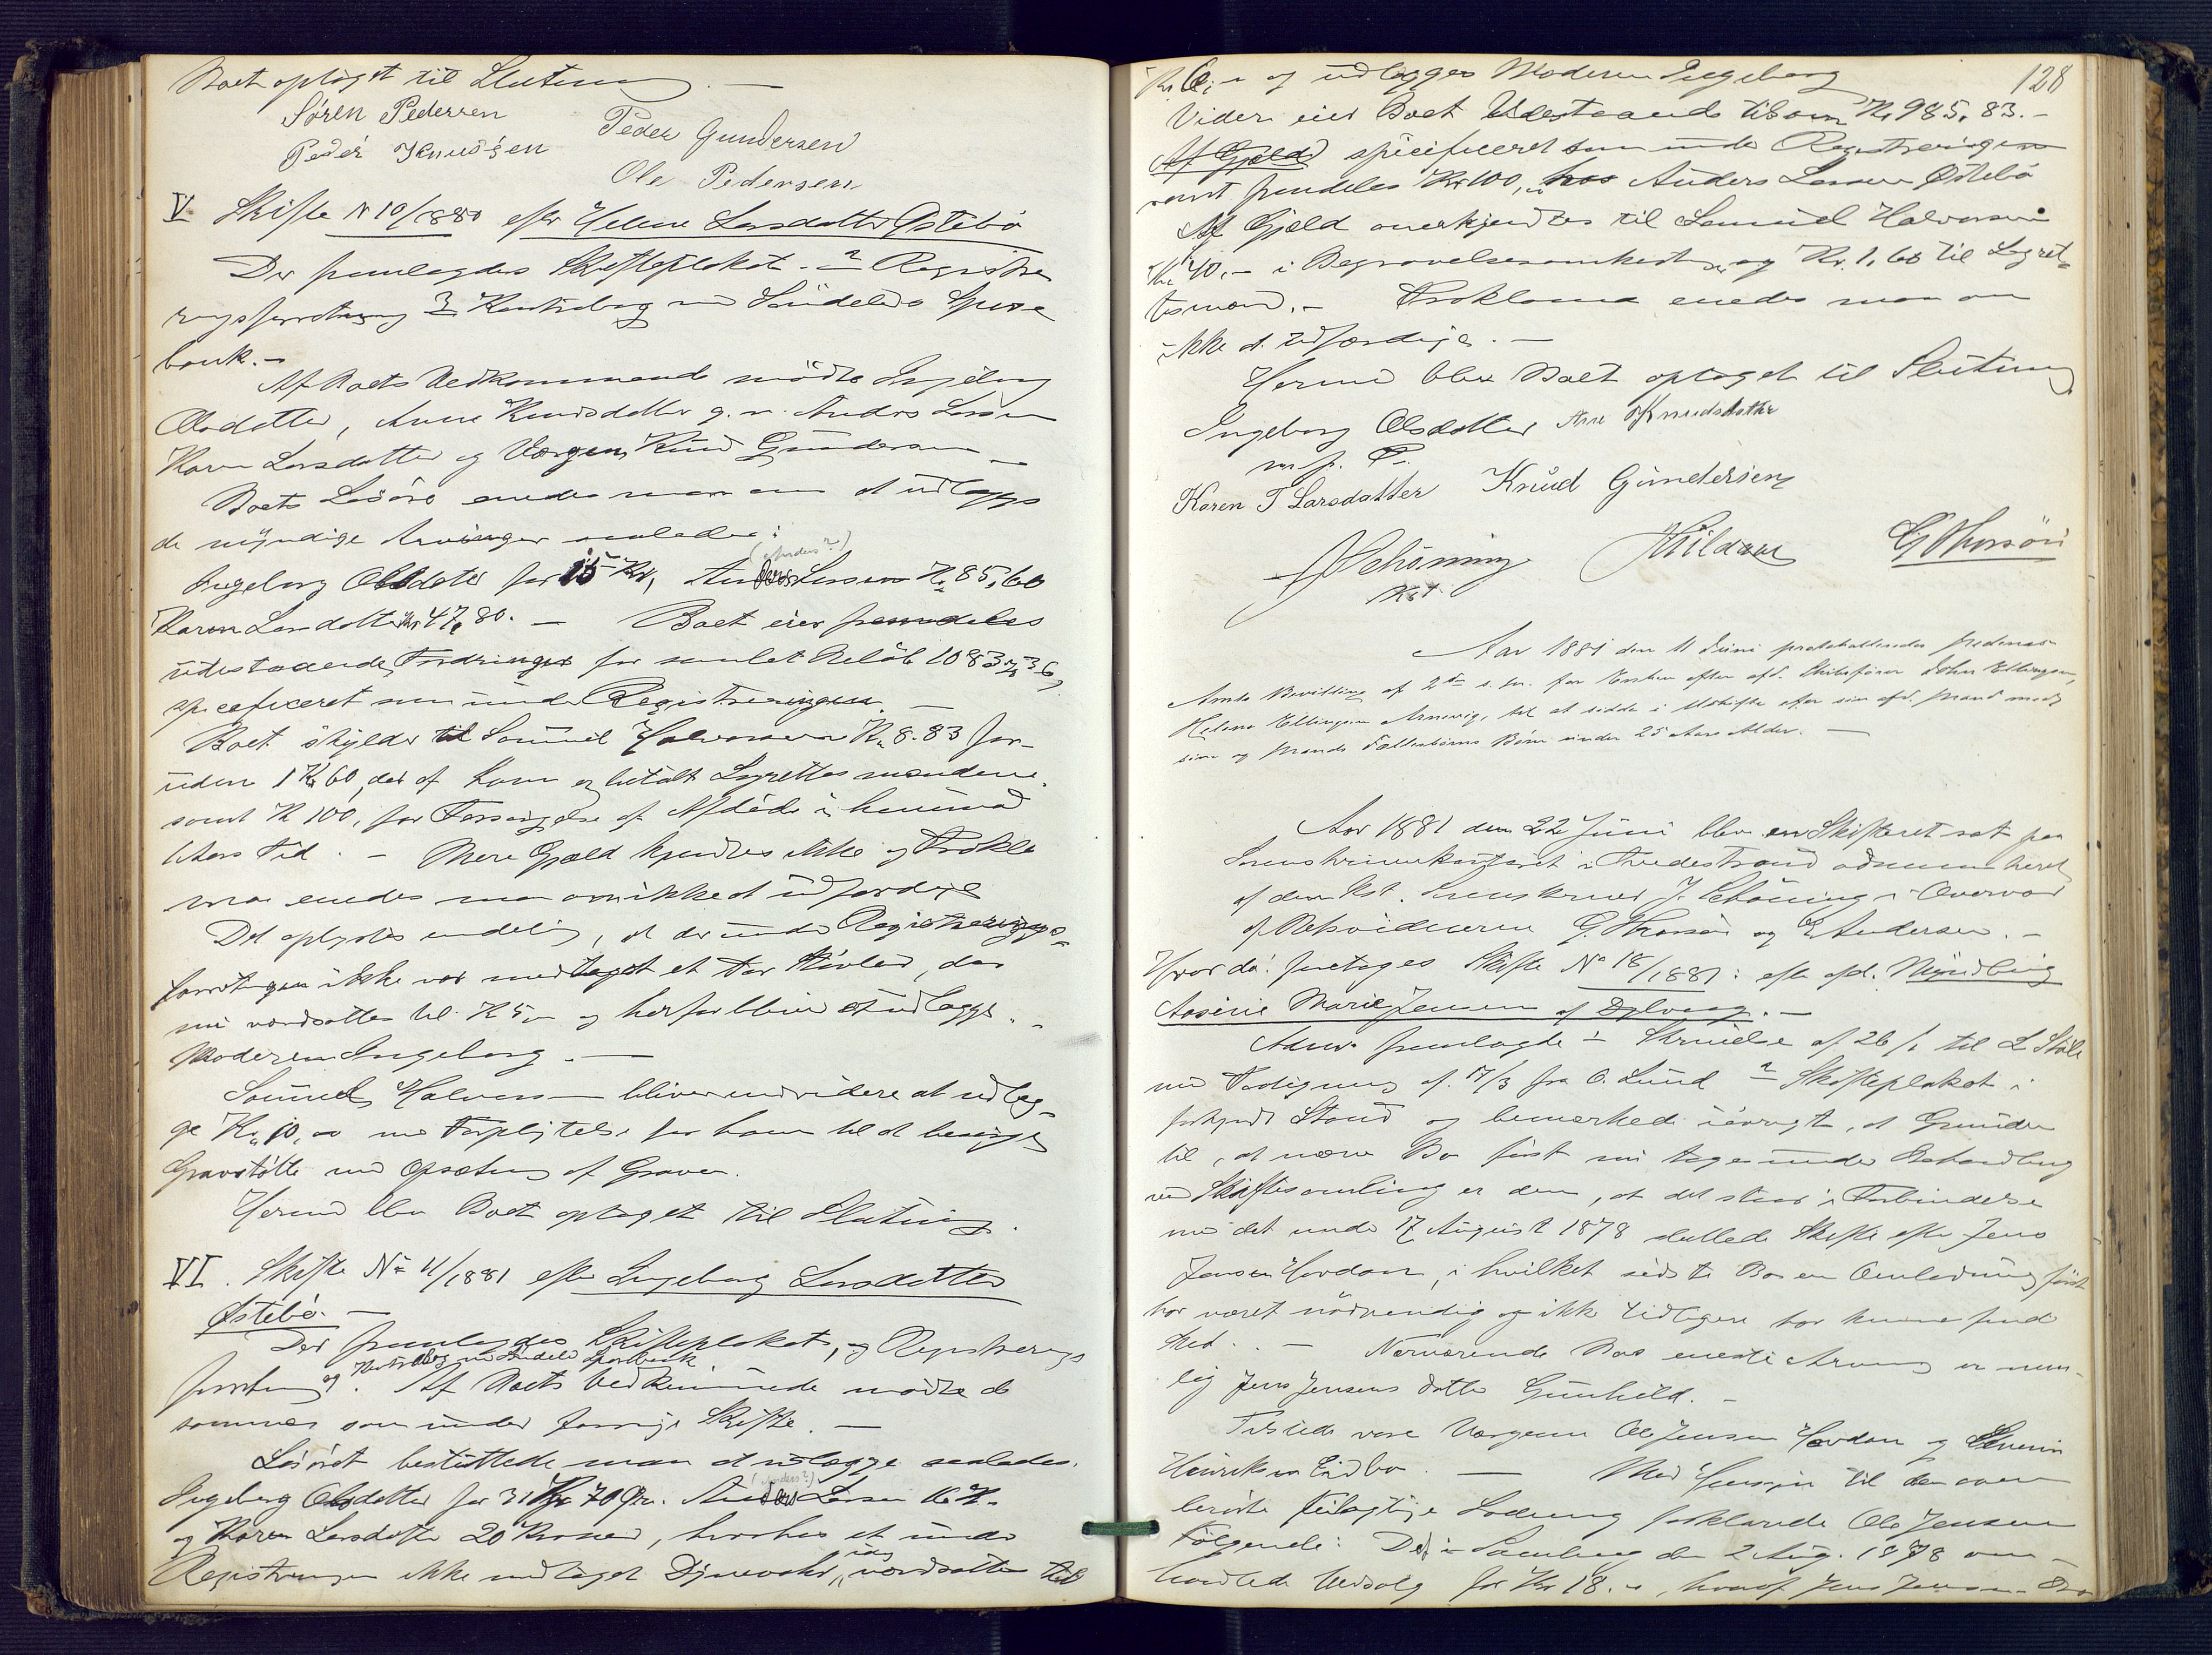 Boet optaget til Slutning. —
Søren Pedersen
Peder Gundersen
Peder Knudsen
Ole Pedersen
V Skifte N 10/1880 efter Helene Larsdatter Østebø
Der fremlagdes Skifteplakat. 2 Registre
ringsforretning 3 Kontrabog med Søndeleds Spare
bank. —
Af Boets Vedkommende mødte Ingeborg
Olsdatter, Anne Knudsdatter g. m. Anders Larsen
Karen Larsdatter og Værgen Knud Gundersen —
Boets Løsøre enedes man om at udlægge
de myndige Arvinger saaledes:
(Anders?)
Ingeborg Olsdatter for 15 Kr, Anders Larsen Kr 85,60
Karen Larsdatter Kr 47,80. — Boet eier fremdeles
udestaaende Fordringer for samlet Beløb 1083 Kr 36,
specificeret som under Registreringen. —
Boet skylder til Samuel Halvorsen Kr 8.83 for-
uden 1 Kr 60, der af ham er betalt Lagrettesmændene.
samt Kr 100, for Forsørgelse af Afdøde i henimod
1 Aars Tid. — Mere Gjæld kjendtes ikke og Prokla
ma enedes man om ikke at udfærdige
Det oplystes endelig, at der under Registrerings-
forretningen ikke var medtaget et Par Støvler, der
nu værdsattes til Kr 5,– og herfor bliver at udlægge
Moderen Ingeborg. —
Samuel Halvorsen bliver endvidere at udlæg-
ge Kr 10,00 med Forpligtelse for ham til at besørge
Gravstøtte med Opsætning af Graven.
Hermed blev Boet optaget til Slutning.
VI. Skifte No 11/1881 efter Ingeborg Larsdatter
Østebø. —
Der fremlagdes Skifteplakat, og Registrerings
forretning og Kontrabog med Søndeleds Sparebank. Af Boets Vedkommende mødte de
sammes som under forrige Skifte. —
Løsøret besluttede man at udlægge saaledes.
(Anders?)
Ingeborg Olsdatter for 31 Kr 70 Øre. Anders Larsen
og Karen Larsdatter 20 Kroner, hvorhos et under
Registreringen ikke medtaget Dynevaar, idag værdsattes til
128
Kr 6,– og udlægges Moderen Ingeborg
Videre eier Boet Udestaaende tilsam Kr 985,83. —
Af Gjæld specificeret som under Registreringen
samt fremdeles Kr 100, hos Anders Larsen Østebø
Af Gjæld anerkjendtes til Samuel Halvorsen
Kr 40,– i Begravelsesomkostninger og Kr. 1,60 til Lagret-
tesmænd. — Proklama enedes man om
ikke at udfærdige. —
Hermed blev Boet optaget til Slutning
Ingeborg Olsdatter Ane Knudsdatter
m. p. P.
Karen T Larsdatter Knud Gundersen
J Schöning
Kst
GThorsøn
Aar 1881 den 11 Juni protokolleredes
Amts Bevilling af 2den s. m. for Enken efter afd. Skibsfører John Ellingsen,
Helene Ellingsen Arnevig, til at sidde i Uskifte efter sin afd. Mand med
sine og Mands Fællesbørn Børn under 25 Aars Alder. —
Aar 1881 den 22 Juni blev en Skifteret sat paa
Sorenskriverkontoret i Tvedestrand administreret
af den Kst. Sorenskriver J. Schöning i Overvær
af Retsvidnerne G. Thorsøn og E Andersen. —
Hvor da: foretoges Skifte No 18/1881: efter afd. Myndling
Aasine Marie Jensen af Dybvaag. —
Adm. fremlagde 1 Skrivelse af 26/1 til L. Stole
med Paategning af 17/3 fra O. Lund 2 Skifteplakat i
forkyndt Stand og bemærkede iøvrigt, at Grunden
til, at nærv. Bo først nu tages under Behandling
ved Skiftesamling er den, at det staar i Forbindelse
med det under 17 August 1878 sluttede Skifte efter Jens
Jensen Hovdan, i hvilket sidste Bo en Omladning først
har været nødvendig og ikke tidligere har kunne finde
Sted. — Nærværende Bos eneste Arving er nem-
lig Jens Jensens datter Gunhild. —
Tilstede vare Værgerne Ole Jensen Hovdan og Severin
Henriksen Eidbo. — Med Hensyn til den oven
berørte feilagtige Lodning forklarede Ole Jensen
Følgende: Det i Samling den 2 Aug. 1878 om-
handlede Vedsalg for Kr 18.–, hvoraf Jens Jensen